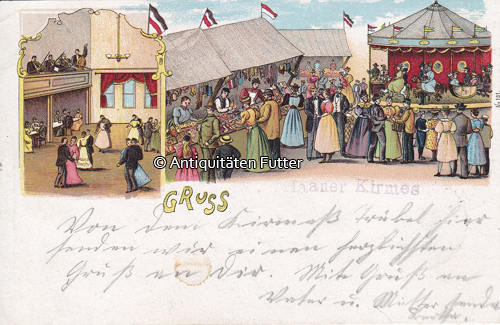 © Antiquitäten Futter
GRUSS
Haaner Kirmes
Von dem Kirmeß trubel hier
senden wir einen herzlichsten
Gruß an Dir. Mit Gruß an
Vater u. Mutter sendet
Bertha.